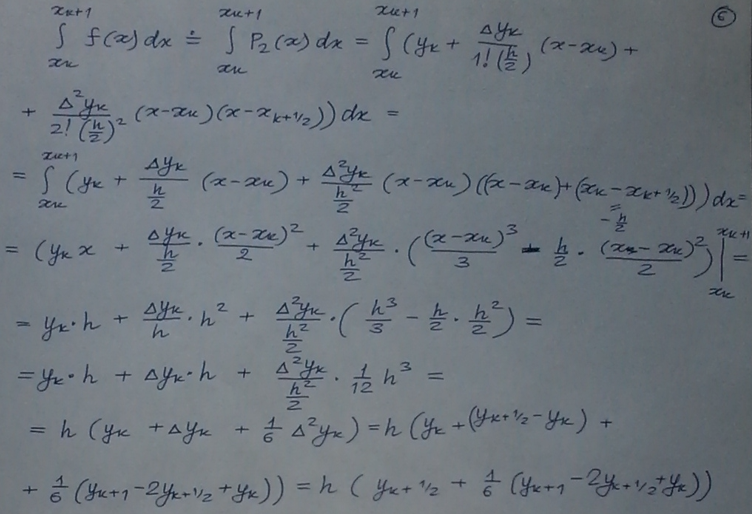 ⑥
∫_{xₖ}^{xₖ₊₁} f(x) dx ≐ ∫_{xₖ}^{xₖ₊₁} P₂(x) dx = ∫_{xₖ}^{xₖ₊₁} (yₖ + Δyₖ / (1! (h/2)) (x-xₖ) +
+ Δ²yₖ / (2! (h/2)²) (x-xₖ)(x-x_{k+1/2})) dx =
= ∫_{xₖ}^{xₖ₊₁} (yₖ + Δyₖ / (h/2) (x-xₖ) + Δ²yₖ / (h²/2) (x-xₖ)((x-xₖ)+(xₖ-x_{k+1/2}))) dx =
= -h/2
= (yₖ x + Δyₖ / (h/2) · (x-xₖ)²/2 + Δ²yₖ / (h²/2) · ((x-xₖ)³/3 - h/2 · (x-xₖ)²/2) |_{xₖ}^{xₖ₊₁} =
= yₖ·h + Δyₖ/h · h² + Δ²yₖ / (h²/2) · (h³/3 - h/2 · h²/2) =
= yₖ·h + Δyₖ·h + Δ²yₖ / (h²/2) · 1/12 h³ =
= h (yₖ + Δyₖ + 1/6 Δ²yₖ) = h(yₖ + (y_{k+1/2} - yₖ) +
+ 1/6 (yₖ₊₁ - 2y_{k+1/2} + yₖ)) = h ( y_{k+1/2} + 1/6 (yₖ₊₁ - 2y_{k+1/2} + yₖ))